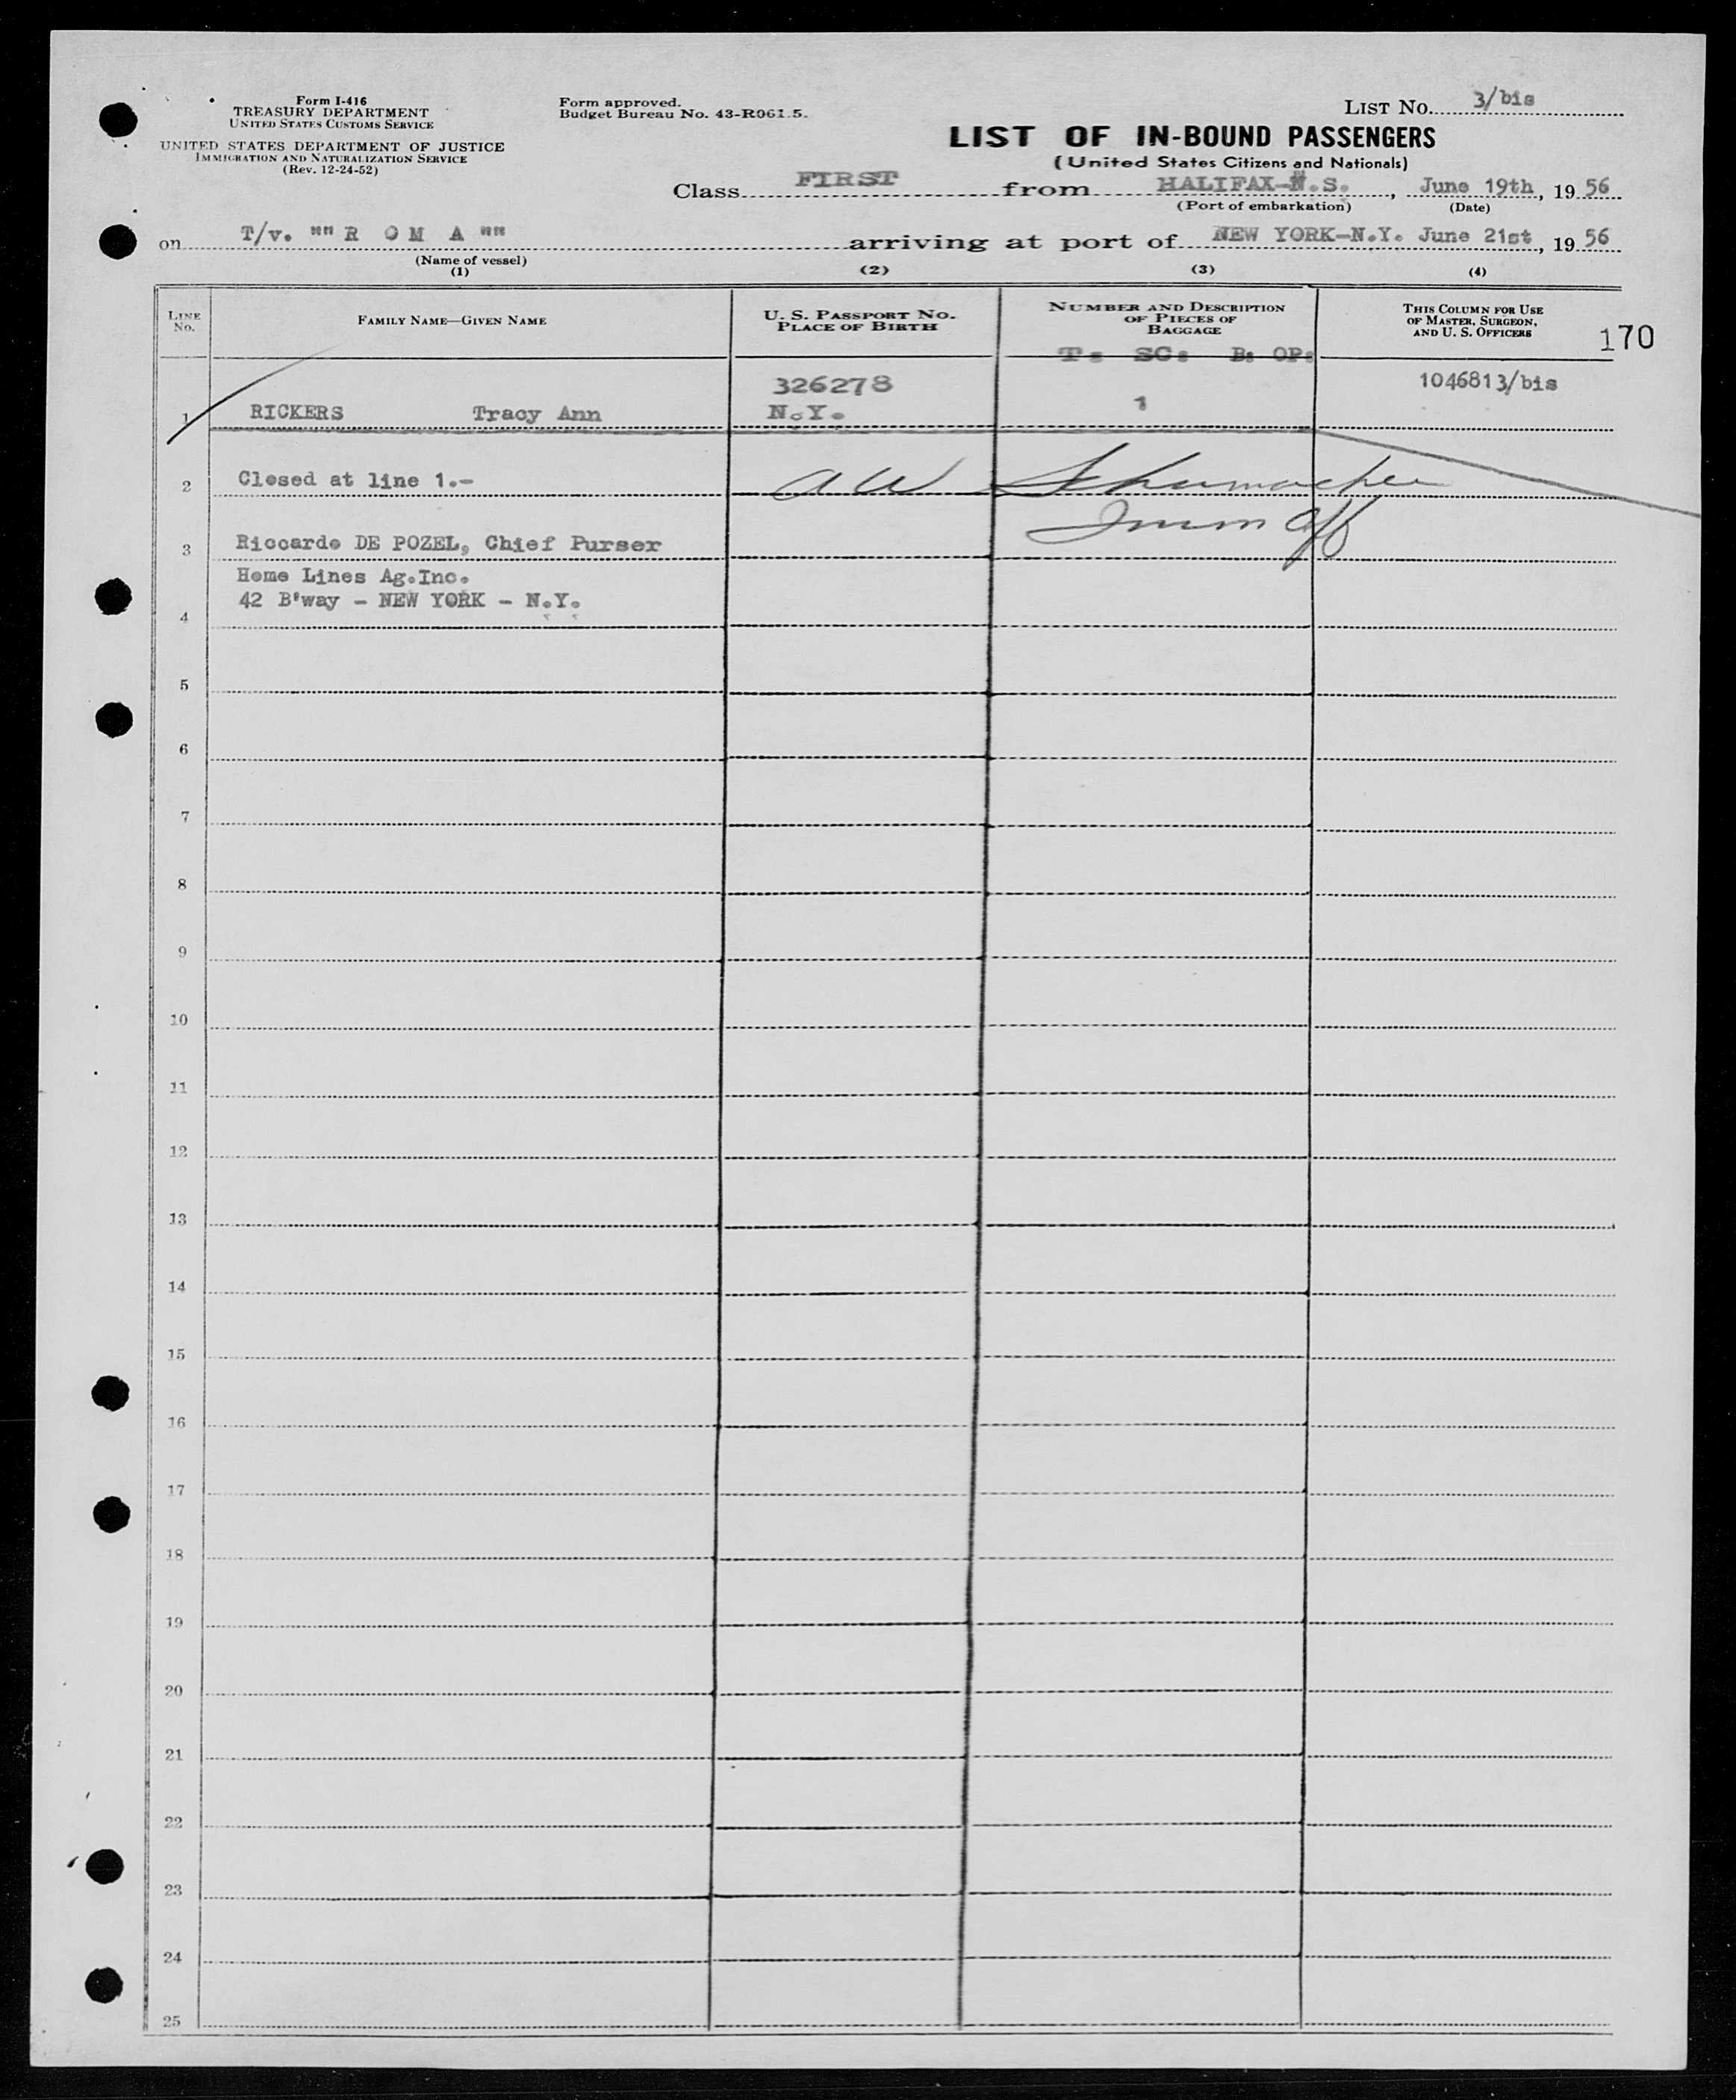 Form I-416
TREASURY DEPARTMENT
UNITED STATES CUSTOMS SERVICE
UNITED STATES DEPARTMENT OF JUSTICE
IMMIGRATION AND NATURALIZATION SERVICE
(Rev. 12-24-52)
Form approved.
Budget Bureau No. 43-R061.5.
LIST No. 3/bis
LIST OF IN-BOUND PASSENGERS
(United States Citizens and Nationals)
Class FIRST from HALIFAX-N.S., June 19th, 1956
(Port of embarkation) (Date)
on T/v. "" R O M A "" arriving at port of NEW YORK-N.Y. June 21st, 1956
(Name of vessel)
(1) (2) (3) (4)
LINE No. FAMILY NAME—GIVEN NAME U. S. PASSPORT NO. PLACE OF BIRTH NUMBER AND DESCRIPTION OF PIECES OF BAGGAGE THIS COLUMN FOR USE OF MASTER, SURGEON, AND U. S. OFFICERS 170
T: SC: B: OP:
326278 1046813/bis
1 RICKERS Tracy Ann N.Y. 1
2 Closed at line 1.- A W Schumacher
Imm Off
3 Riccardo DE POZEL, Chief Purser
Home Lines Ag.Inc.
42 B'way - NEW YORK - N.Y.
4
5
6
7
8
9
10
11
12
13
14
15
16
17
18
19
20
21
22
23
24
25